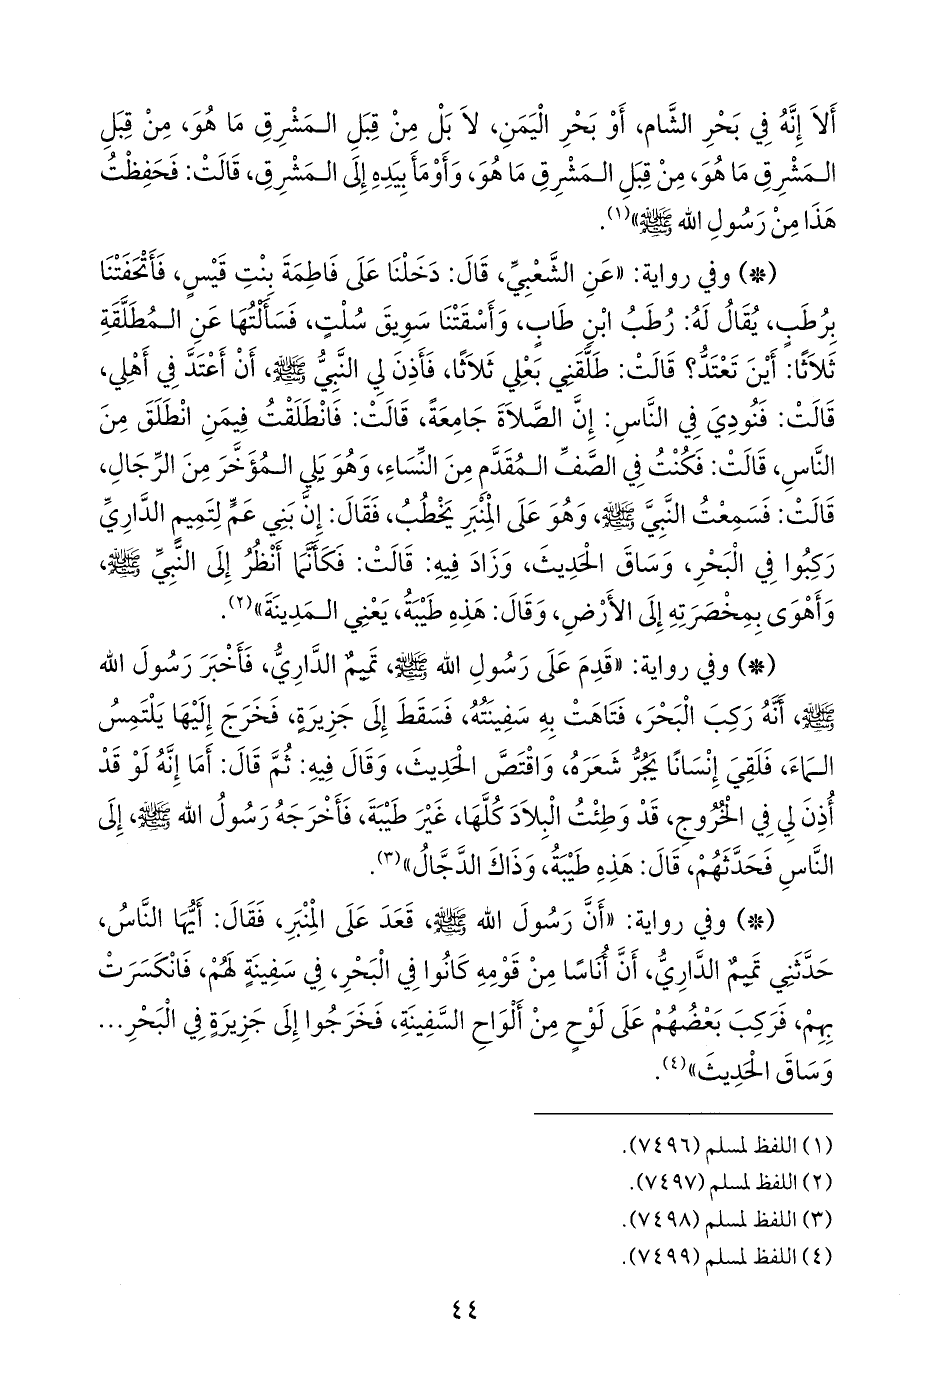 أَلاَ إِنَّهُ فِي بَحْرِ الشَّامِ، أَوْ بَحْرِ الْيَمَنِ، لاَ بَلْ مِنْ قِبَلِ الـمَشْرِقِ مَا هُوَ، مِنْ قِبَلِ
الـمَشْرِقِ مَا هُوَ، مِنْ قِبَلِ الـمَشْرِقِ مَا هُوَ، وَأَوْمَأَ بِيَدِهِ إِلَى الـمَشْرِقِ، قَالَتْ: فَحَفِظْتُ
هَذَا مِنْ رَسُولِ الله ﷺ»(١).
(*) وفي رواية: «عَنِ الشَّعْبِيِّ، قَالَ: دَخَلْنَا عَلَى فَاطِمَةَ بِنْتِ قَيْسٍ، فَأَتْحَفَتْنَا
بِرُطَبٍ، يُقَالُ لَهُ: رُطَبُ ابْنِ طَابٍ، وَأَسْقَتْنَا سَوِيقَ سُلْتٍ، فَسَأَلْتُهَا عَنِ الـمُطَلَّقَةِ
ثَلاَثًا: أَيْنَ تَعْتَدُّ؟ قَالَتْ: طَلَّقَنِي بَعْلِي ثَلاَثًا، فَأَذِنَ لِي النَّبِيُّ ﷺ، أَنْ أَعْتَدَّ فِي أَهْلِي،
قَالَتْ: فَنُودِيَ فِي النَّاسِ: إِنَّ الصَّلاَةَ جَامِعَةً، قَالَتْ: فَانْطَلَقْتُ فِيمَنِ انْطَلَقَ مِنَ
النَّاسِ، قَالَتْ: فَكُنْتُ فِي الصَّفِّ الـمُقَدَّمِ مِنَ النِّسَاءِ، وَهُوَ يَلِي الـمُؤَخَّرَ مِنَ الرِّجَالِ،
قَالَتْ: فَسَمِعْتُ النَّبِيَّ ﷺ، وَهُوَ عَلَى الْمِنْبَرِ يَخْطُبُ، فَقَالَ: إِنَّ بَنِي عَمٍّ لِتَمِيمٍ الدَّارِيِّ
رَكِبُوا فِي الْبَحْرِ، وَسَاقَ الْحَدِيثَ، وَزَادَ فِيهِ: قَالَتْ: فَكَأَنَّمَا أَنْظُرُ إِلَى النَّبِيِّ ﷺ،
وَأَهْوَى بِمِخْصَرَتِهِ إِلَى الأَرْضِ، وَقَالَ: هَذِهِ طَيْبَةُ، يَعْنِي الـمَدِينَةَ»(٢).
(*) وفي رواية: «قَدِمَ عَلَى رَسُولِ الله ﷺ، تَمِيمٌ الدَّارِيُّ، فَأَخْبَرَ رَسُولَ الله
ﷺ، أَنَّهُ رَكِبَ الْبَحْرَ، فَتَاهَتْ بِهِ سَفِينَتُهُ، فَسَقَطَ إِلَى جَزِيرَةٍ، فَخَرَجَ إِلَيْهَا يَلْتَمِسُ
الـمَاءَ، فَلَقِيَ إِنْسَانًا يَجُرُّ شَعَرَهُ، وَاقْتَصَّ الْحَدِيثَ، وَقَالَ فِيهِ: ثُمَّ قَالَ: أَمَا إِنَّهُ لَوْ قَدْ
أُذِنَ لِي فِي الْخُرُوجِ، قَدْ وَطِئْتُ الْبِلاَدَ كُلَّهَا، غَيْرَ طَيْبَةَ، فَأَخْرَجَهُ رَسُولُ الله ﷺ، إِلَى
النَّاسِ فَحَدَّثَهُمْ، قَالَ: هَذِهِ طَيْبَةُ، وَذَاكَ الدَّجَّالُ»(٣).
(*) وفي رواية: «أَنَّ رَسُولَ الله ﷺ، قَعَدَ عَلَى الْمِنْبَرِ، فَقَالَ: أَيُّهَا النَّاسُ،
حَدَّثَنِي تَمِيمٌ الدَّارِيُّ، أَنَّ أُنَاسًا مِنْ قَوْمِهِ كَانُوا فِي الْبَحْرِ، فِي سَفِينَةٍ لَهُمْ، فَانْكَسَرَتْ
بِهِمْ، فَرَكِبَ بَعْضُهُمْ عَلَى لَوْحٍ مِنْ أَلْوَاحِ السَّفِينَةِ، فَخَرَجُوا إِلَى جَزِيرَةٍ فِي الْبَحْرِ...
وَسَاقَ الْحَدِيثَ»(٤).
(١) اللفظ لمسلم (٧٤٩٦).
(٢) اللفظ لمسلم (٧٤٩٧).
(٣) اللفظ لمسلم (٧٤٩٨).
(٤) اللفظ لمسلم (٧٤٩٩).
٤٤